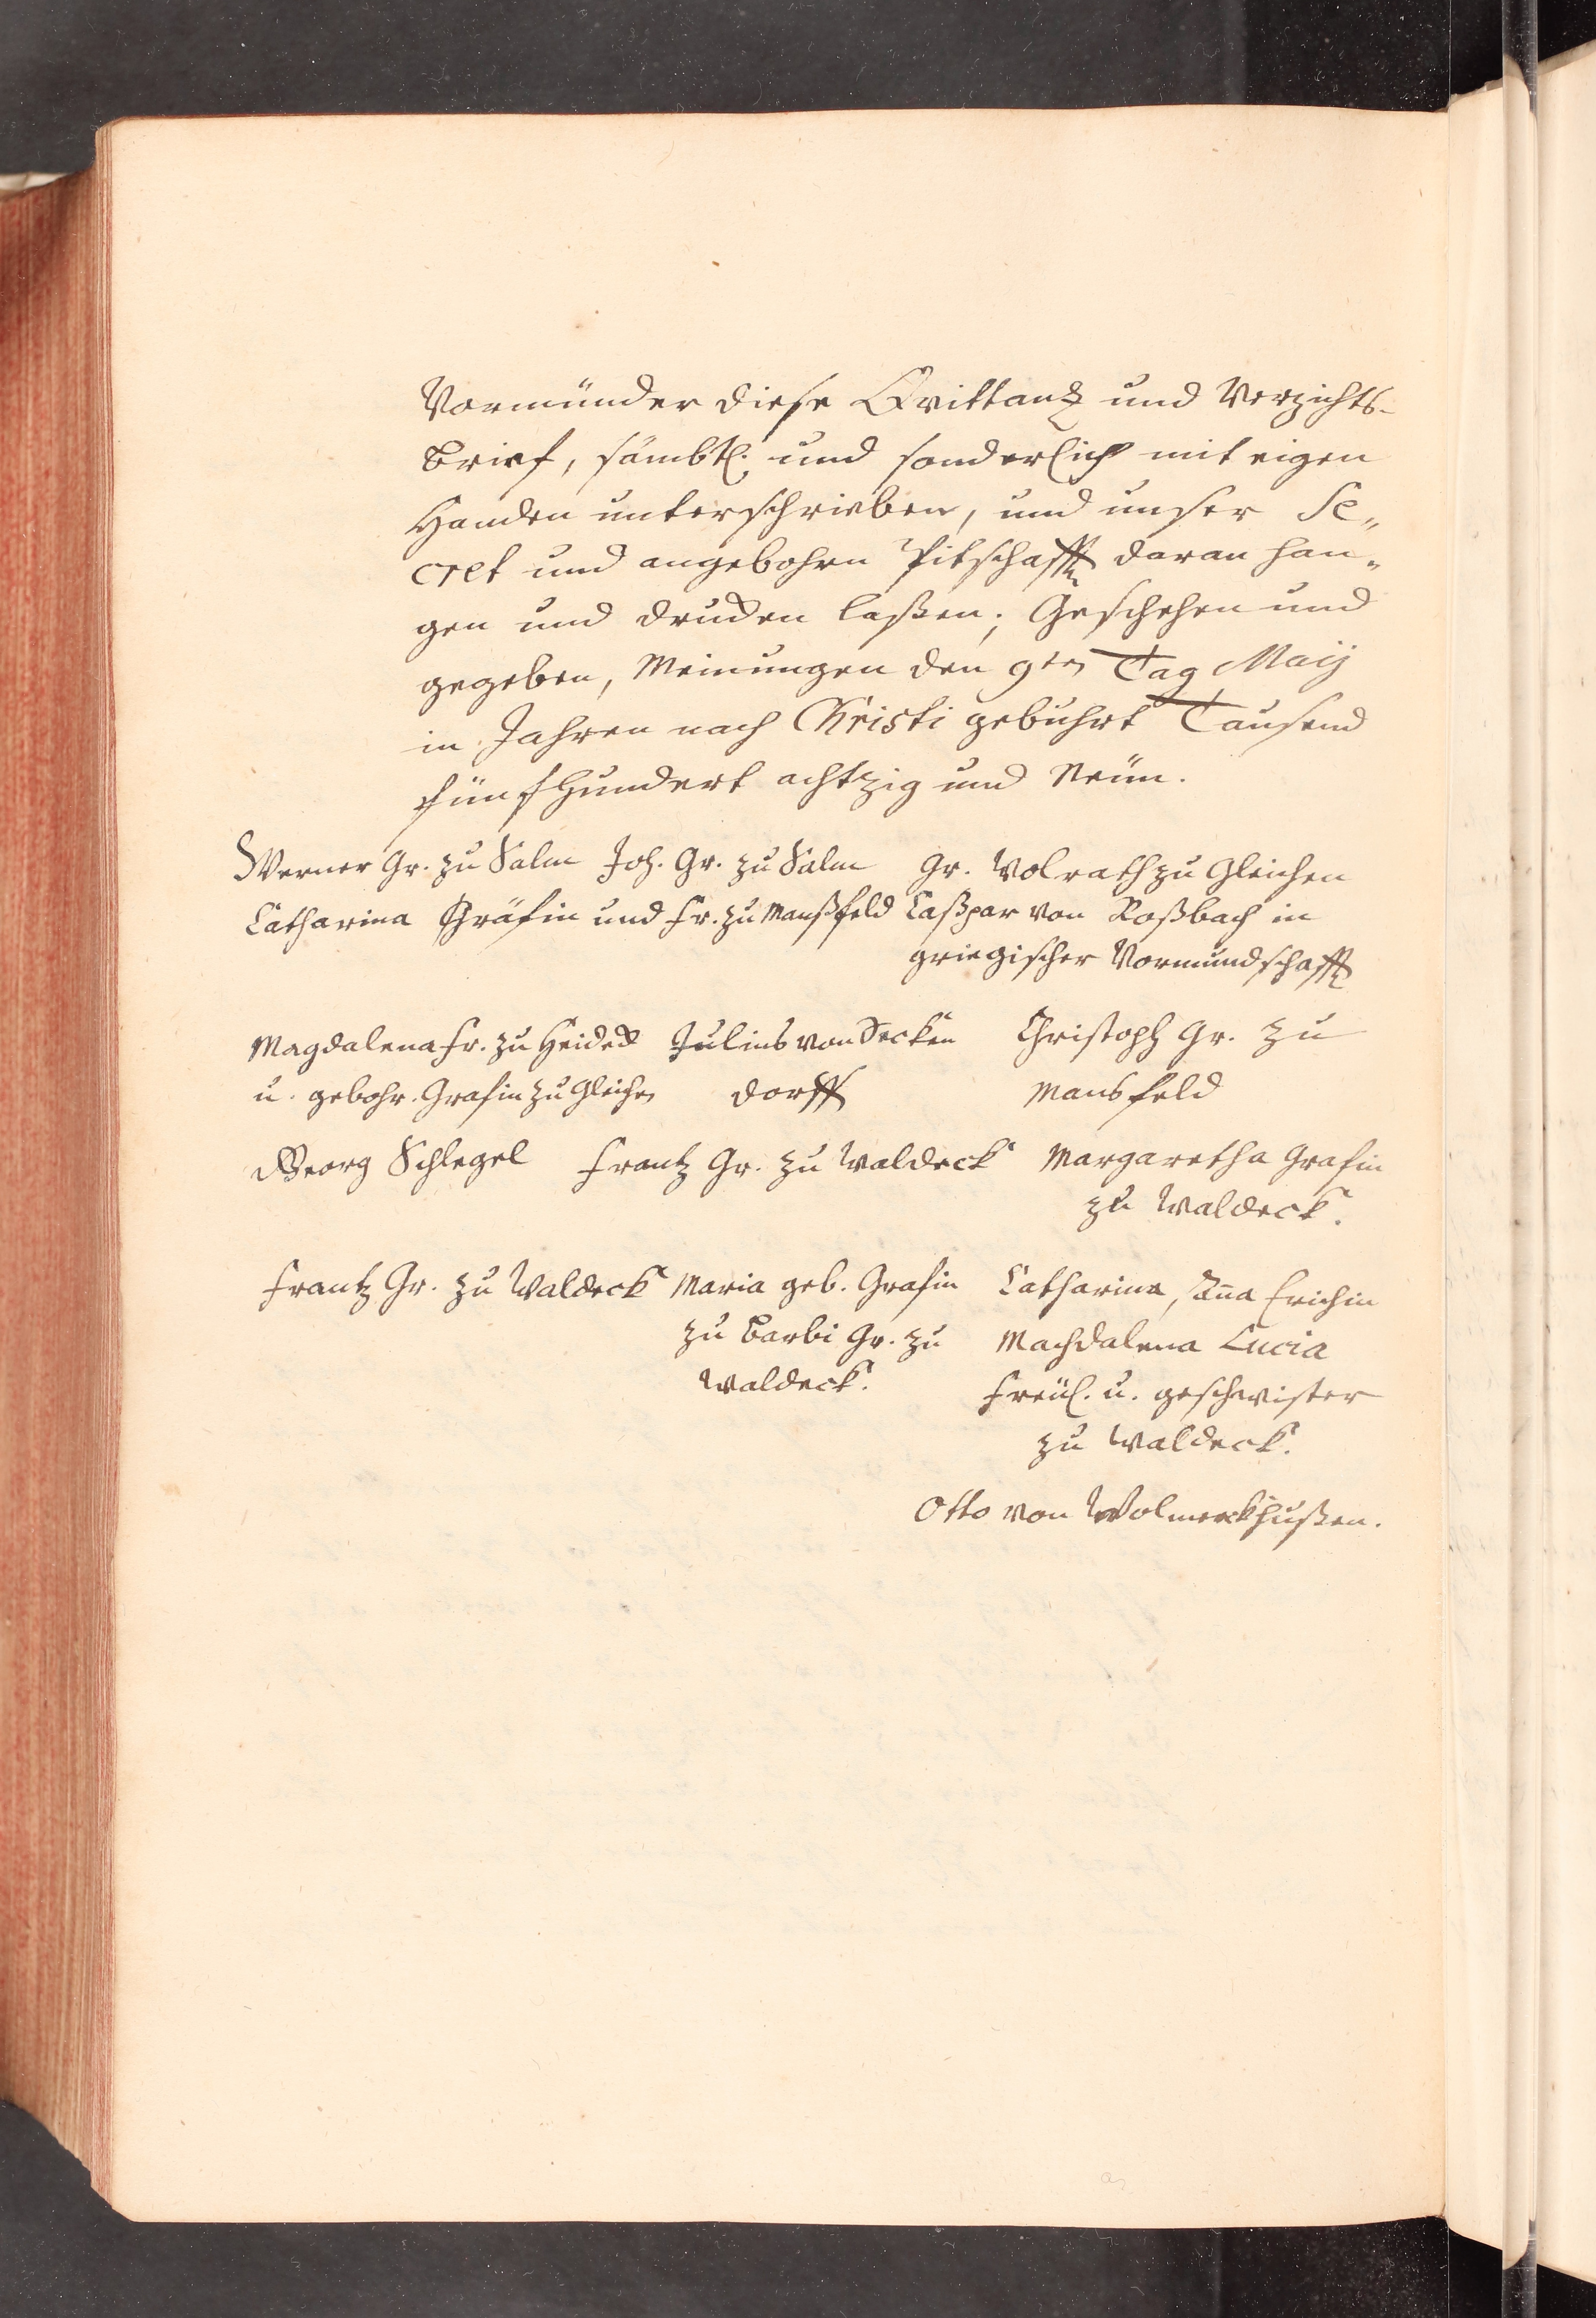 Vormünder diese Qvittantz und Verzichts-
Brief, sämbtl. und sonderlich mit eigen
Handen unterschrieben, und unser Se„
cret und angebohrn Pitschafft daran han„
gen und drucken laßen; Geschehen und
gegeben, Meinungen den 9ten Tag Maij
in Jahren nach Christi gebuhrt Tausend
fünfhundert achtzig und Neün.
Werner Gr. zu Salm Joh. Gr. zu Salm Gr. Volrath zu Gleichen
Catharina Gräfin und Fr. zu Manßfeld Caßpar von Roßbach in
griegischer Vormundschafft
Magdalena Fr. zu Heideck Julius von Secken Christoph Gr. zu
u. gebohr. Grafin zu Gleichen dorff Mansfeld
Georg Schlegel Frantz Gr. zu Waldeck Margaretha Grafin
zu Waldeck.
Frantz Gr. zu Waldeck Maria geb. Grafin Catharina, Aña Erichin
zu Barbi Gr. zu Machdalena Lucia
Waldeck. Freül. u. geschwister
zu Waldeck.
Otto von Wolmerckhußen.